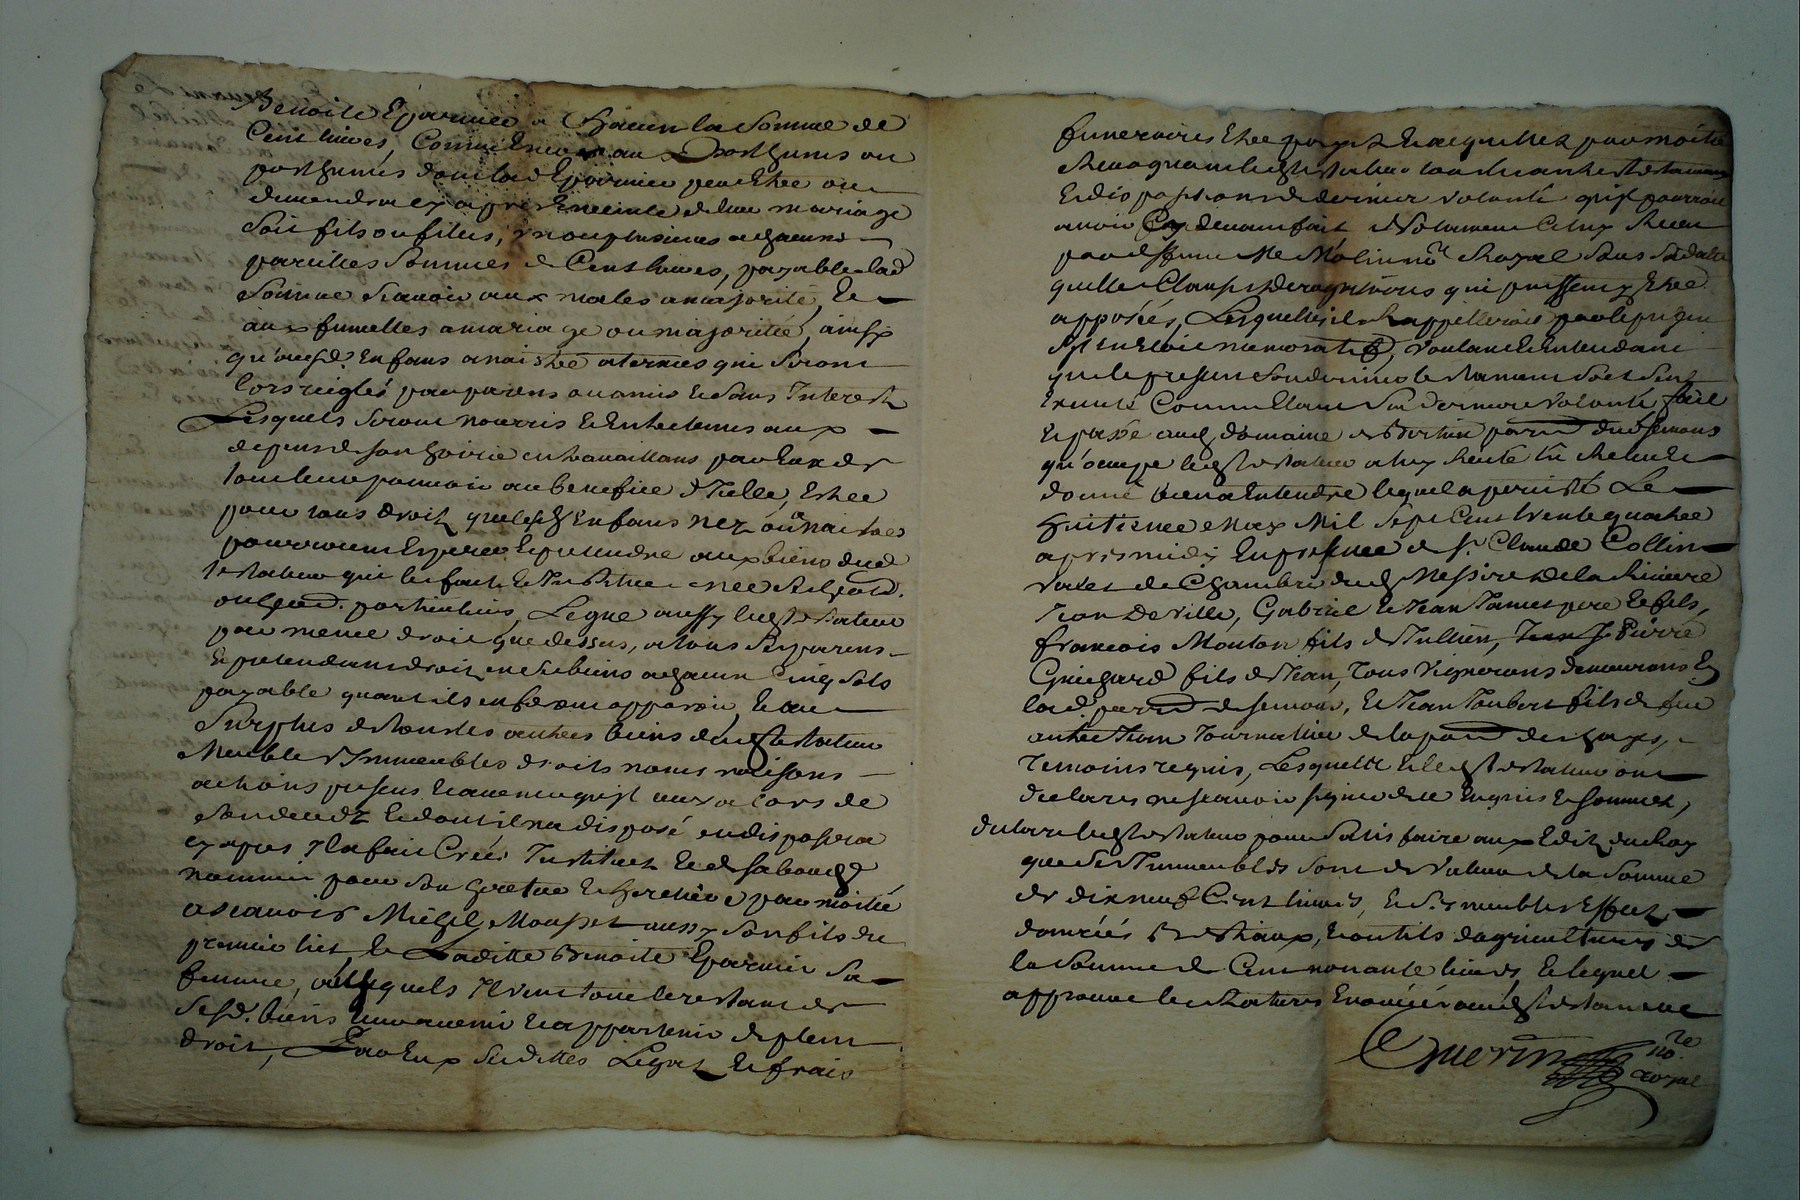 Benoite Eparmier a Chacun la Somme de
Cent livres, Comm' Encore aux Posthumes ou
posthumés dont lad Eparmier peu Etre ou
demeurera cy apres Enceinte de leur mariage
Soit fils ou filles, un ou plusieurs a chacuns
pareilles Sommes de Cent livres, payable lad
Somme Scavoir aux males a majorité, Et
aux fumelles a mariage ou majorité, ainsy
qu'auxd. Enfans a naistre a termes qui Seront
lors reiglés par parens ou amis Et Sans Interest
Lesquels Seront nourris Et Entretenus aux
depens de son hoirie en travaillans par Eux de
tout leur pouvoir au benefice d'Icelle, Estre
pour tous droit que lesd Enfans nez ou a naistres
pourroient Esperer Et pretendre aux biens dud
testateur qui les fait Et Institue
particuliers, Legue aussy led testateur
par meme droit que dessus, a tous Ses parens
Et pretendans droit en Ses biens a chacun Cinq Sols
payable quant ils en feront apparoir, Et au
Surplus de tous les autres biens dud testateur
Meubles Immeubles droits noms raisons
actions presens Et avenir qu'il aura lors de
Son decedz Et dont il n'a disposé en disposera
cy apres Il a fait Créé Institué Et de sa bouche
nommé pour Son heretier Et heretiere par moitié
a Scavoir Michel Mousset aussy Son fils du
premier lict, Et Laditte Benoite Eparmier Sa
femme, ausquels Il veut tout le restant de
Sesd. biens Et appartenir de plein
droit, Par Eux Sesdittes Legat Et frais
funeraires Etre payez Et acquittez par moitié
Revoquant led testateur tous autres testamens
Et dispositions de derniere volonté qu'il pourroit
avoir Cy devant fait Notament Celuy Receu
par deffunt Me Molin no.re Royal Sous Sa datte
quelles Clauses derogatoires qui puissent y Etre
apposées, Lesquelles il Rappelleroit par le present
S'il En Etoit memoratif, voulant Et Entendant
que le present Son dernier testament Soit Seul
Executé Comm' Etant Sa derniere volonté, fait
Et passé aud domaine de Bertin parr. dud Semons
qu'occupe led testateur a luy Releu Et
donné bien a Entendre lequel a persisté Le
huitieme May Mil Sept Cent trente quatre
apres midy En presence de Sr. Claude Collin
valet de Chambre dud Messire de la Riviere
Jean Deville, Gabriel Et Jean Jamet pere Et fils,
francois Mouton fils de Jullien, Pierre
Guichard fils de Jean, Tous Vignerons demeurans En
lad. parr. de Semons, Et Jean Joubert fils de feu
autre Jean Journallier de la parr. des hayes,
Temoins requis, Lesquels Et led testateur ont
declarés ne scavoir signer de ce Enquis Et Sommez,
declare led testateur pour Satisfaire aux Edits du Roy
que Ses Immeubles Sont de Valeur de la Somme
de dix neuf Cent livres, Et Ses meubles Effects
danrées Bestiaux, Et outils d'agricultures de
la Somme de Cent nonante livres, Et lequel
approuve les Ratures
Guerin no.re
Royal